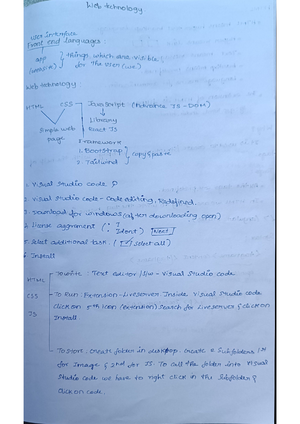 Web technology
User interface
Front end languages:
app } things which are visible
for the user (user)
Web technology
HTML CSS - JavaScript (Advance JS - DOM)
Simple web page
Library
React JS
Framework
1. Bootstrap } copy & paste
2. Tailwind
1. Visual Studio code
2. Visual Studio code - Code editing. Redefined.
3. Download for windows (after downloading open)
4. License agreement (: I
I dont) Next
5. Select additional task. (select all)
6. Install
HTML
CSS
JS
To write : Text editor - Visual Studio code
To Run : Extension - Liveserver Inside Visual Studio code
Click on 5th icon (extension) search for Liveserver & click on
Install.
To start : create folder in desktop create 2 subfolders 1st
for Image & 2nd for JS. To call the folder into Visual
Studio code we have to right click in the subfolder &
click on code.